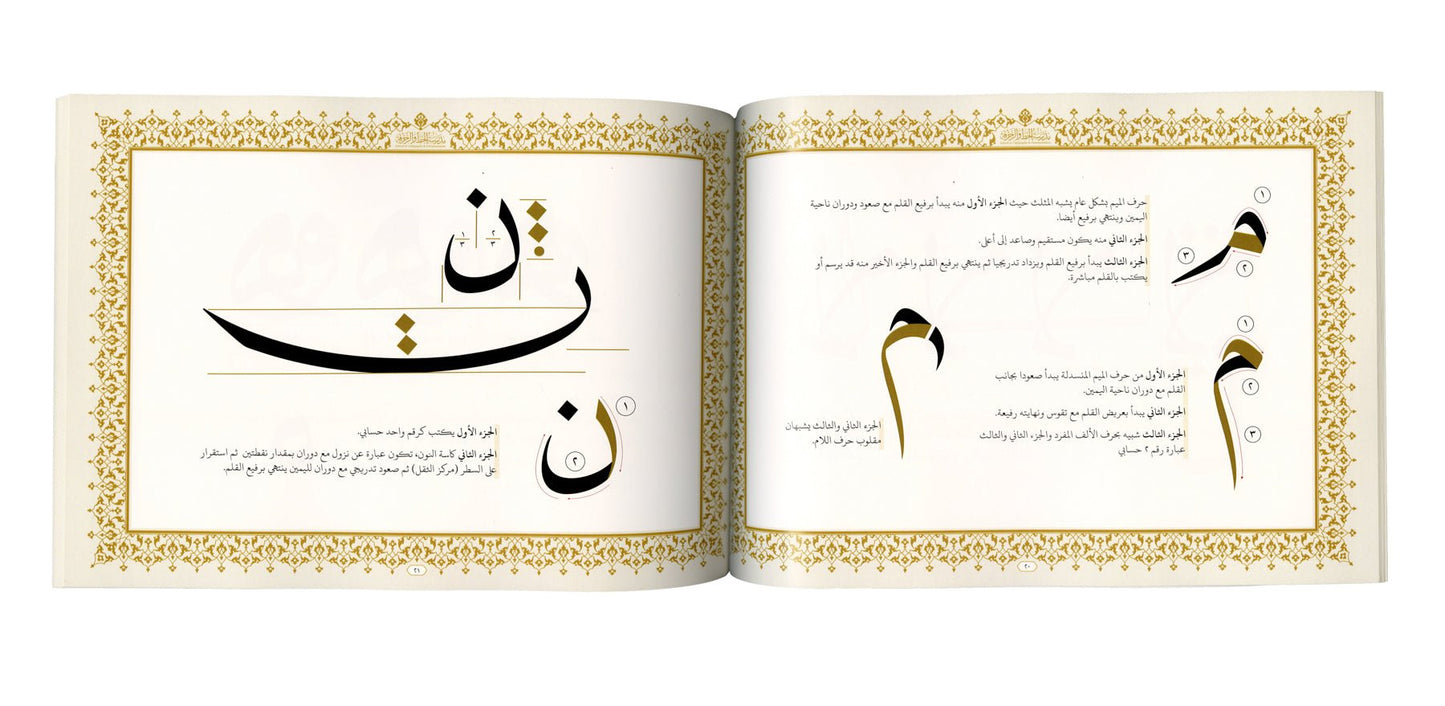 حرف الميم بشكل عام يشبه المثلث حيث الجزء الأول منه يبدأ برفيع القلم مع صعود ودوران ناحية
اليمين وينتهي برفيع أيضا.
الجزء الثاني منه يكون مستقيم وصاعد إلى أعلى.
الجزء الثالث يبدأ برفيع القلم ويزداد تدريجيا ثم ينتهي برفيع القلم والجزء الأخير منه قد يرسم أو
يكتب بالقلم مباشرة.
م
١
٢
٣
الجزء الأول من حرف الميم المنسدلة يبدأ صعودا بجانب
القلم مع دوران ناحية اليمين.
الجزء الثاني يبدأ بعريض القلم مع تقوس ونهايته رفيعة.
الجزء الثالث شبيه بحرف الألف المفرد والجزء الثاني والثالث
عبارة رقم ٢ حسابي
م
١
٢
٣
م
الجزء الثاني والثالث يشبهان
مقلوب حرف اللام.
٢٠
ن
١
٣
٢
٣
ن
١
٢
الجزء الأول يكتب كرقم واحد حسابي.
الجزء الثاني كاسة النون، تكون عبارة عن نزول مع دوران بمقدار نقطتين ثم استقرار
على السطر (مركز الثقل) ثم صعود تدريجي مع دوران لليمين ينتهي برفيع القلم.
ن
٢١